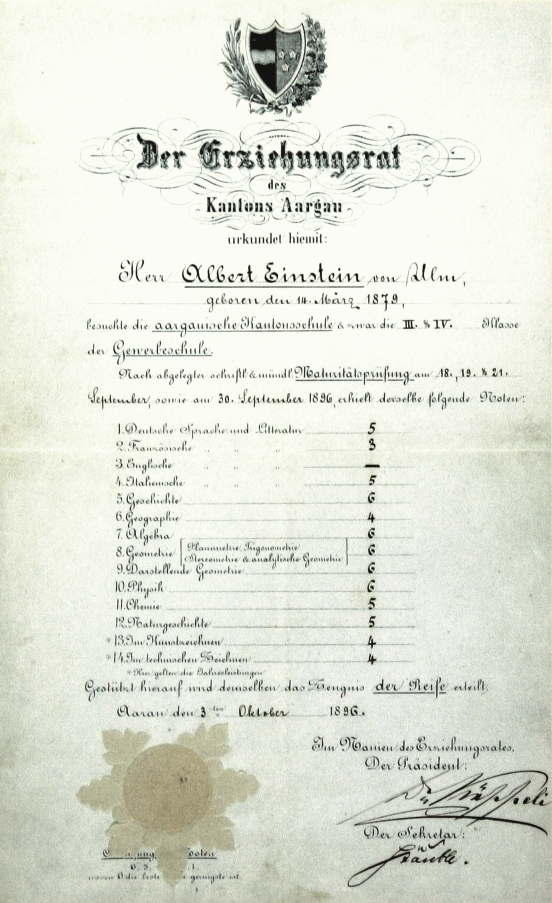 Der Erziehungsrat
des
Kantons Aargau
urkundet hiemit:
Herr Albert Einstein von Ulm,
geboren den 14. März 1879,
besuchte die aargauische Kantonsschule & zwar die III. & IV. Klasse
der Gewerbeschule.
Nach abgelegter schriftl. & mündl. Maturitätsprüfung am 18., 19. & 21.
September, sowie am 30. September 1896, erhielt derselbe folgende Noten:
1. Deutsche Sprache und Litteratur 5
2. Französische " " " 3
3. Englische " " " —
4. Italienische " " " 5
5. Geschichte 6
6. Geographie 4
7. Algebra 6
8. Geometrie Planimetrie, Trigonometrie 6
Stereometrie & analytische Geometrie
9. Darstellende Geometrie 6
10. Physik 6
11. Chemie 5
12. Naturgeschichte 5
* 13. Im Kunstzeichnen 4
* 14. Im technischen Zeichnen 4
* Hier gelten die Jahresleistungen
Gestützt hierauf wird demselben das Zeugnis der Reife erteilt.
Aarau den 3ten Oktober 1896.
Im Namen des Erziehungsrates,
Der Präsident:
Der Sekretär:
Noten
6. 5. 1.
wovon 6 die beste geringste ist.